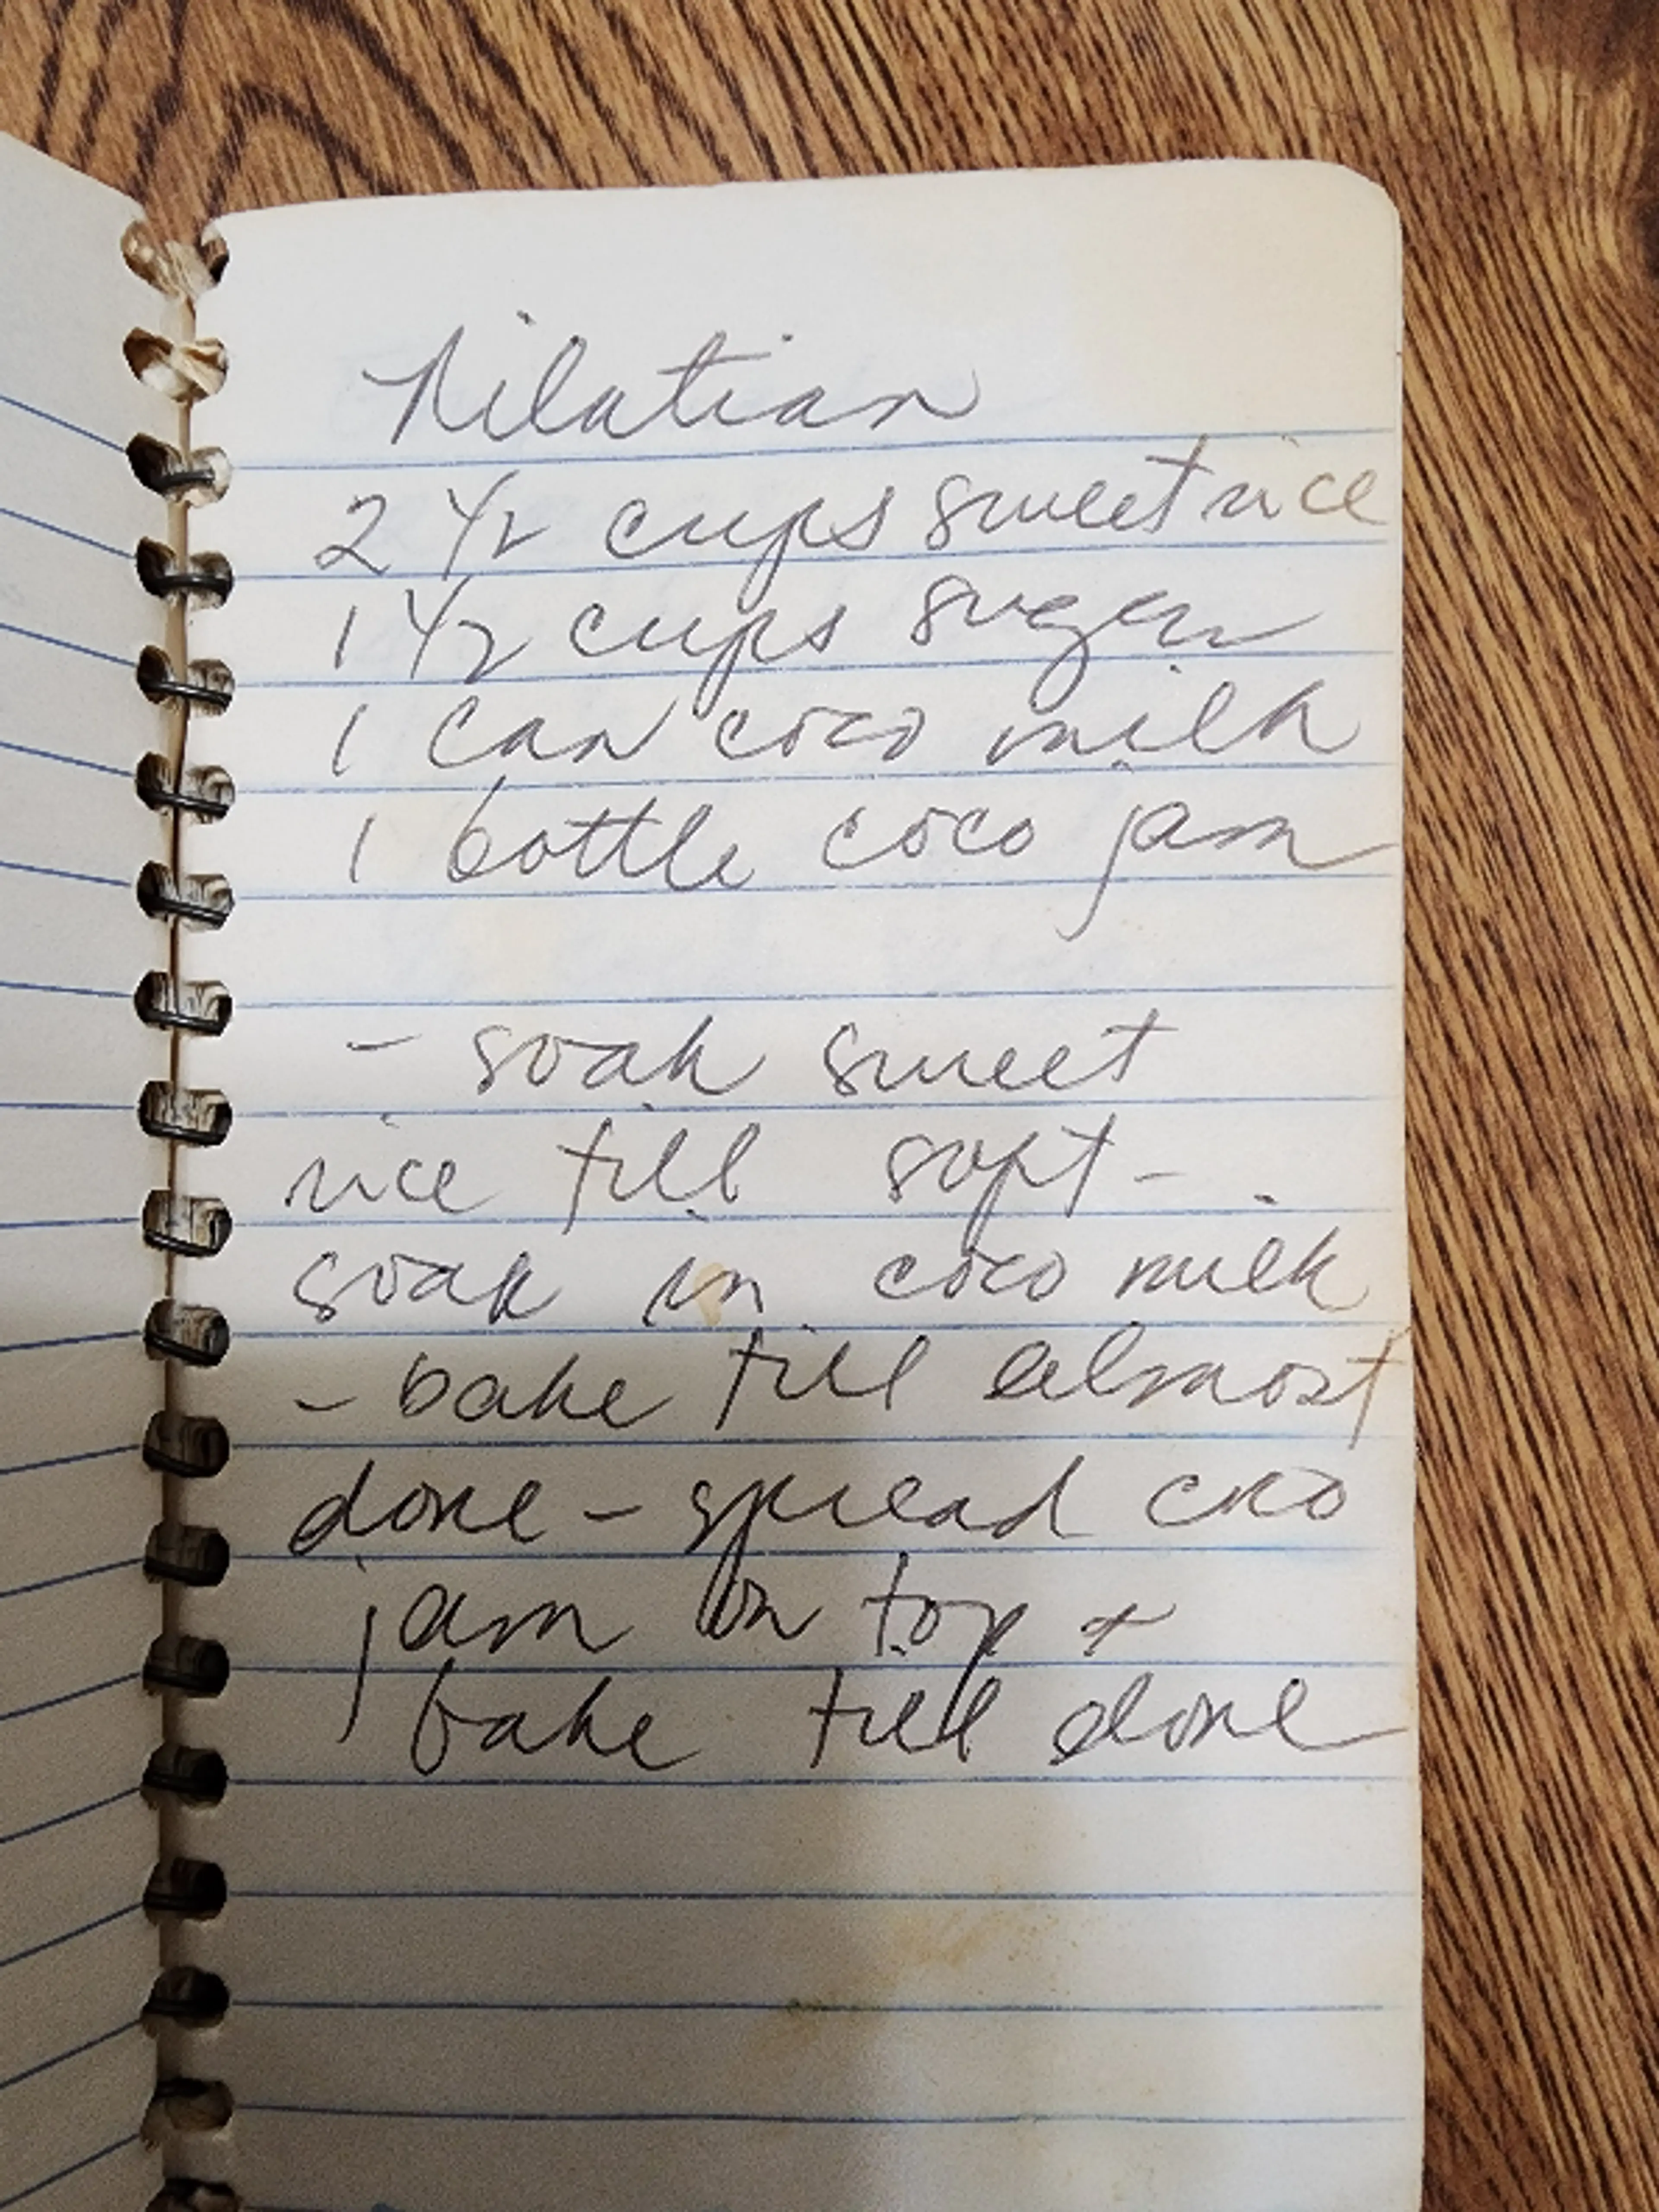 Nilatian
2 1/2 cups sweet rice
1 1/2 cups sugar
1 can coco milk
1 bottle coco jam
- soak sweet
rice till soft -
soak in coco milk
- bake till almost
done - spread coco
jam on top +
bake till done